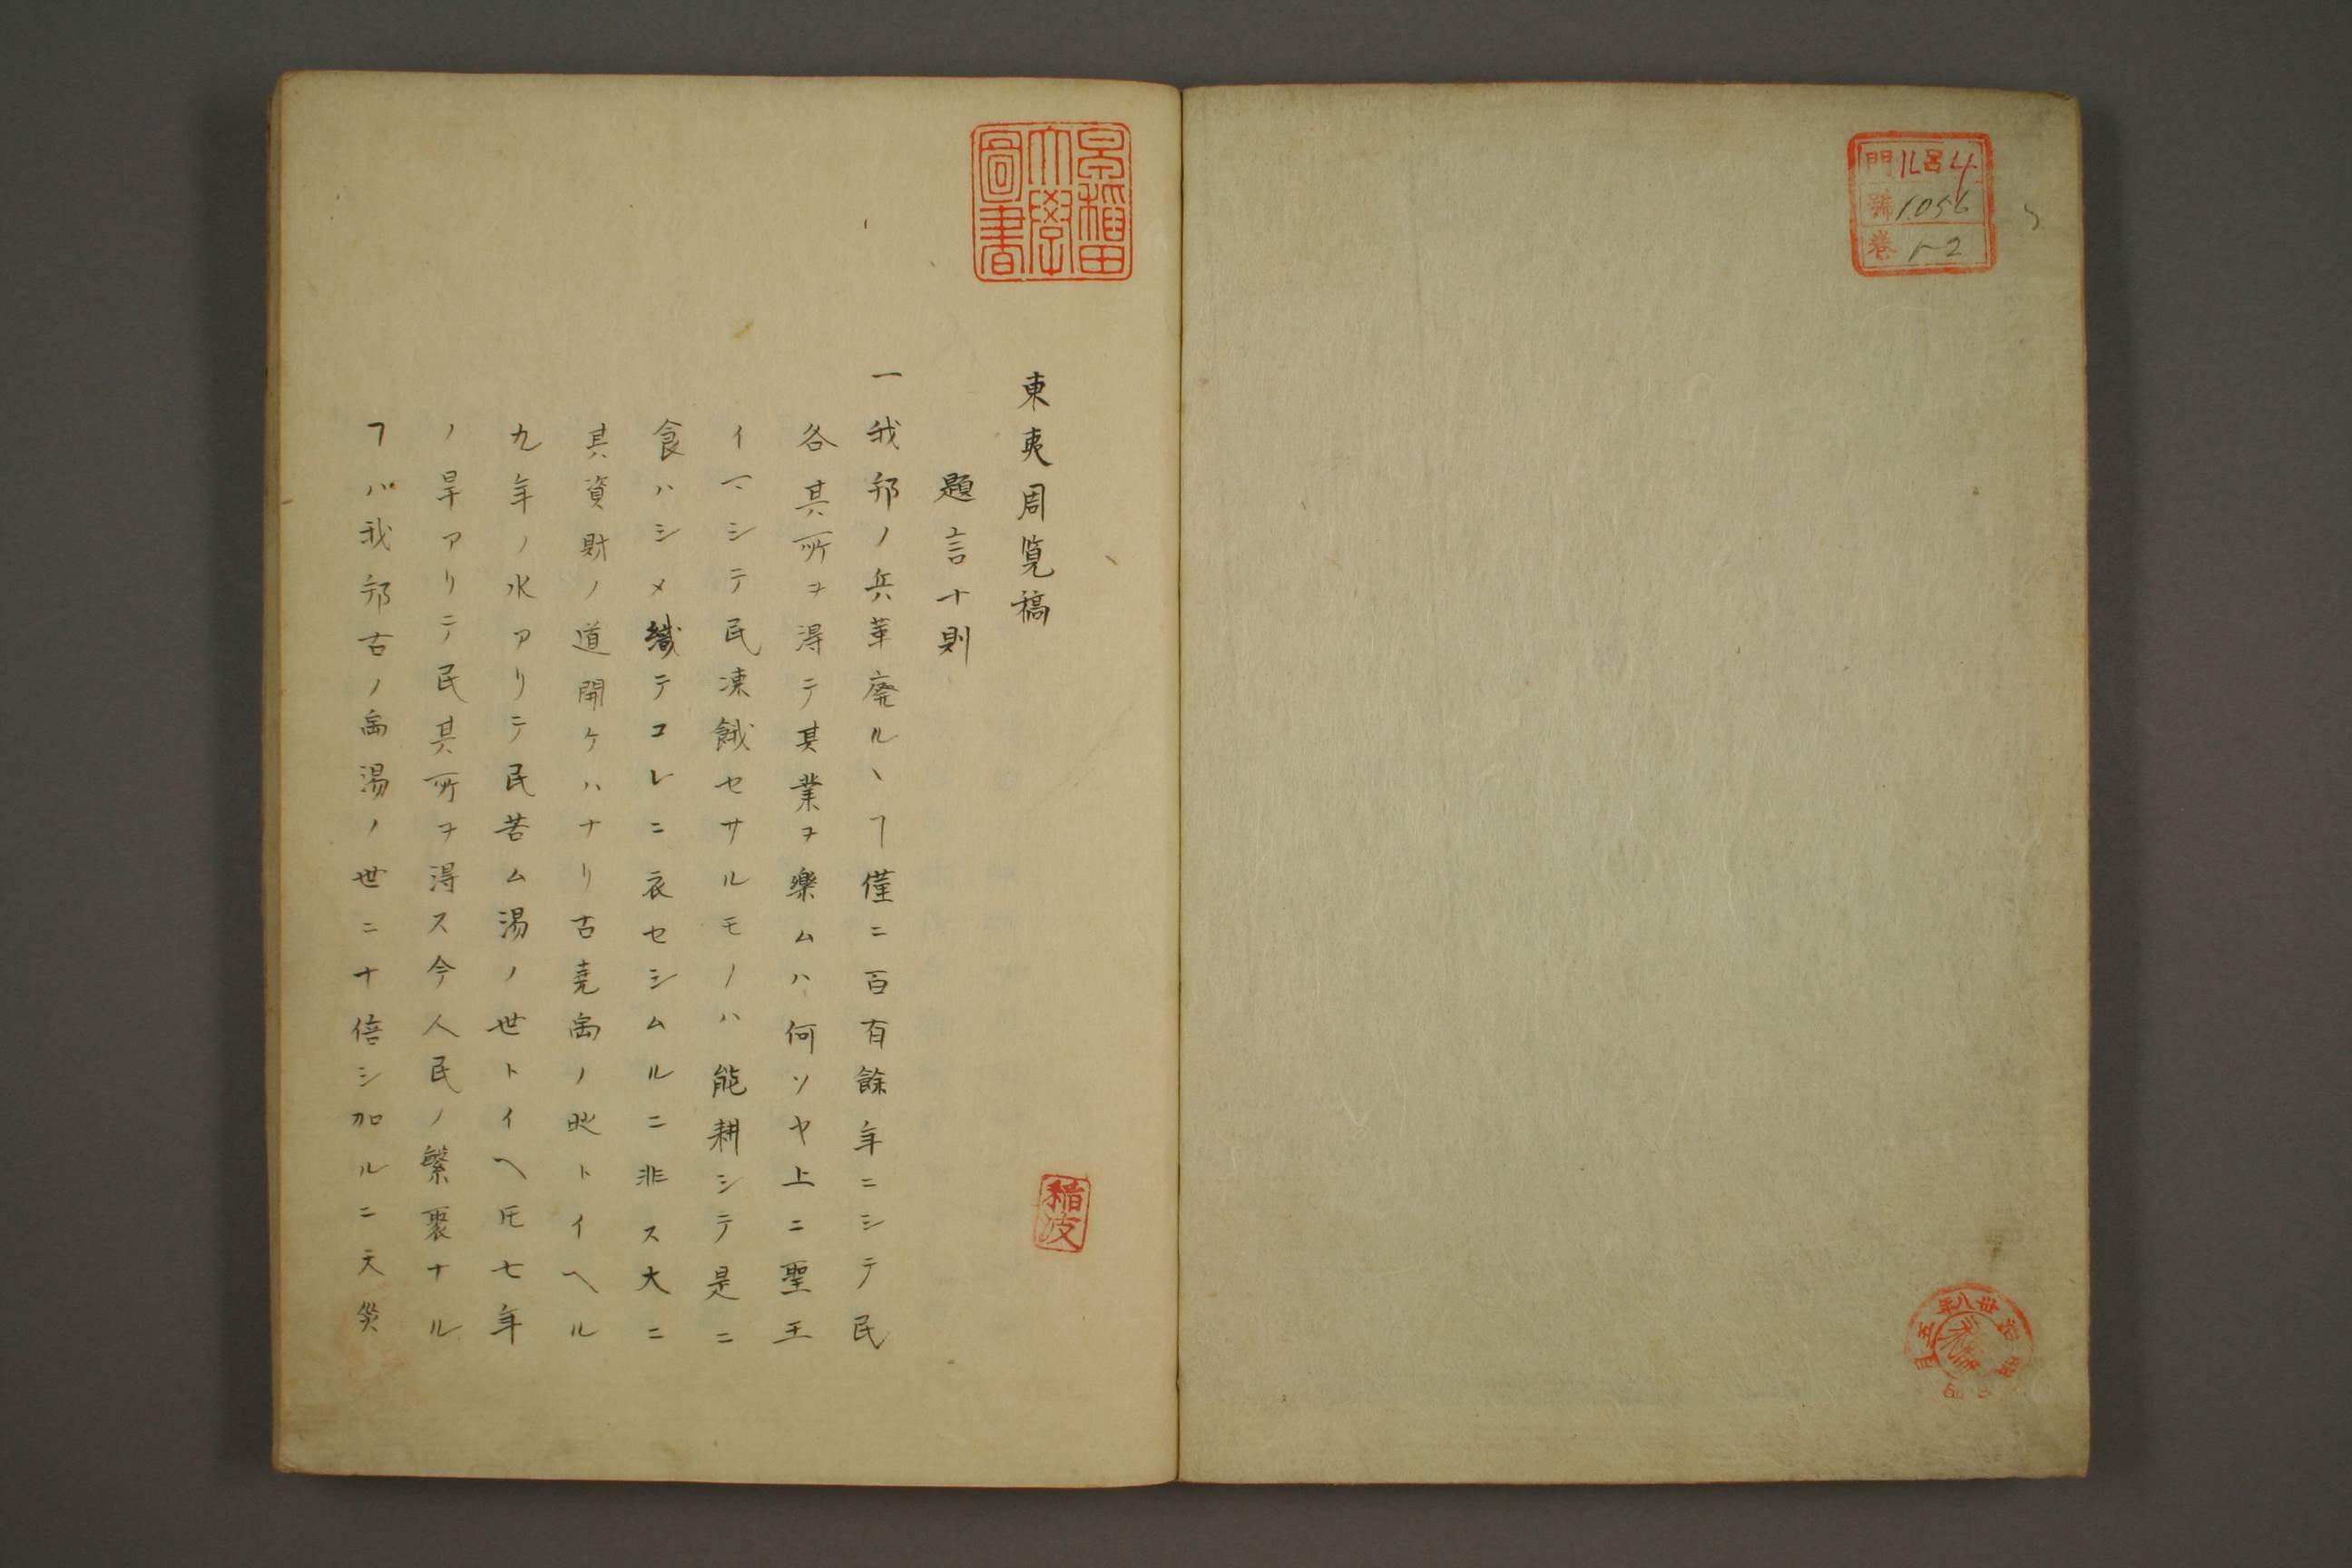 門 ル呂4
號 1056
巻 1-2
早稲田大學圖書
東夷周覧稿
題言十則
一我邦ノ兵革廃ルヽヿ僅ニ百有餘年ニシテ民
各其所ヲ得テ其業ヲ樂ムハ何ソヤ上ニ聖王
イマシテ民凍餓セサルモノハ能耕シテ是ニ
食ハシメ織テコレニ衣セシムルニ非ス大ニ
其資財ノ道開ケハナリ古堯禹ノ時トイヘル
九年ノ水アリテ民苦ム湯ノ世トイヘ𪜈七年
ノ旱アリテ民其所ヲ得ス今人民ノ繁衆ナル
ヿハ我邦古ノ禹湯ノ世ニ十倍シ加ルニ天災